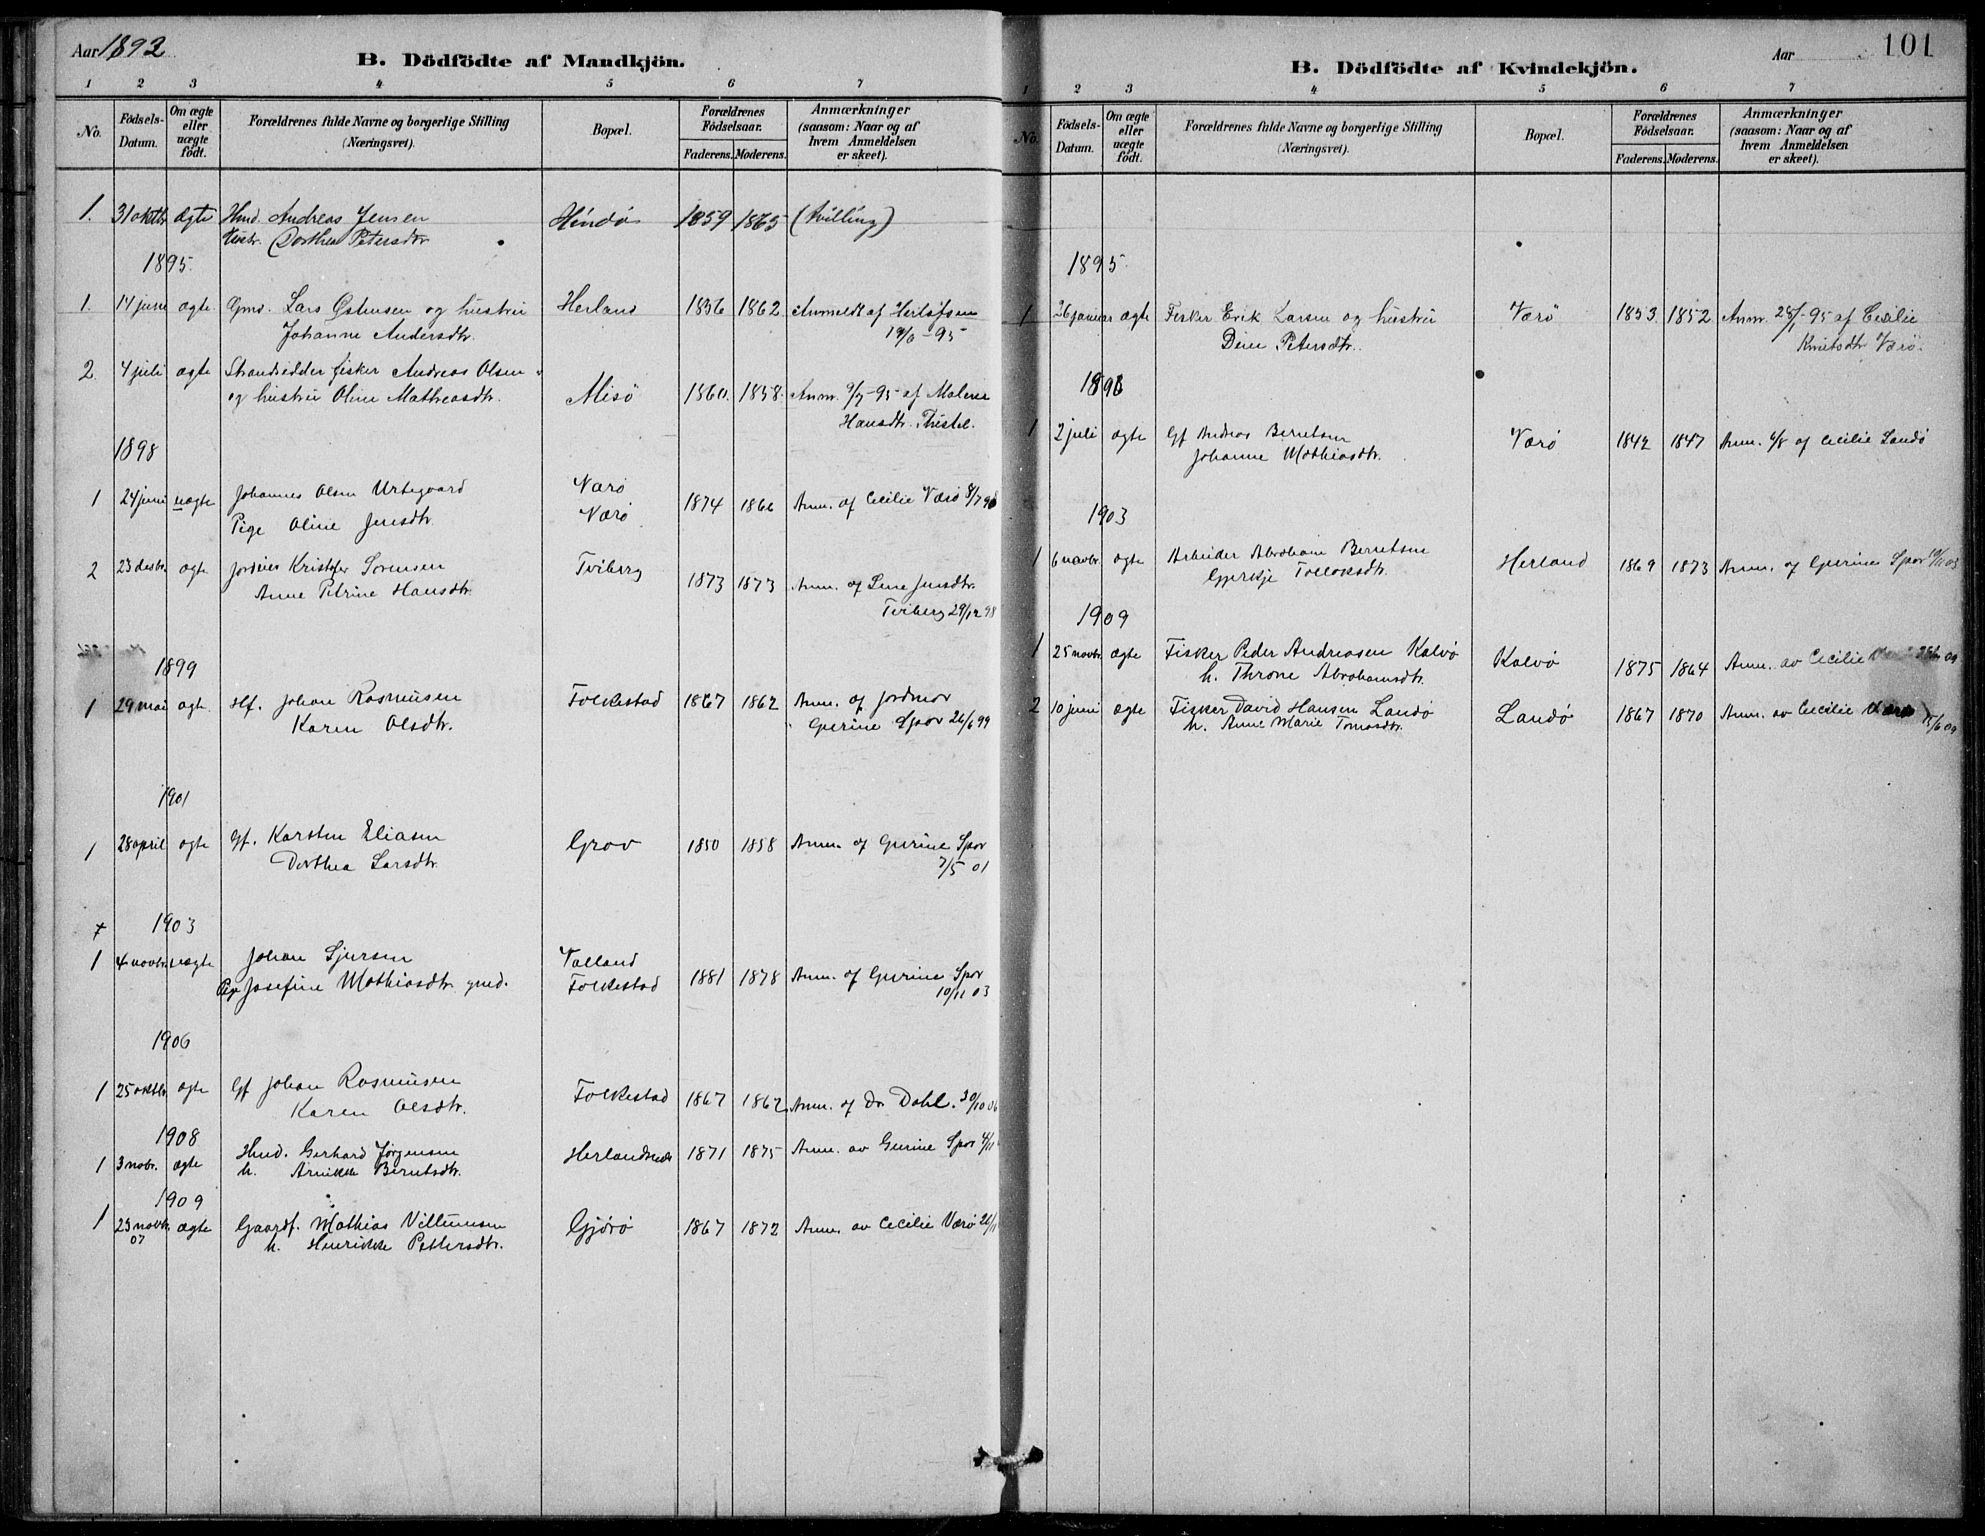 Aar 1892
B. Dödfödte af Mandkjön.
1 2 3 4 5 6 7
No. Födsels-Datum. Om ægte eller uægte født. Forældrenes fulde Navne og borgerlige Stilling (Næringsvei). Bopæl. Forældrenes Födselsaar. Faderens. Moderens. Anmærkninger (saasom: Naar og af hvem Anmeldelsen er skeet).
1. 31 oktbr ægte Hmd. Andreas Jensen Hindø 1859 1865 (Tvilling)
Hustr. Dorthea Petersdtr
1895.
1. 14 juni ægte Gmd. Lars Østensen og hustru Herland 1856 1862 Anmeldt af Herlofsen
Johanne Andersdtr. 19/6-95
2. 4 juli ægte Strandsidder fisker Andreas Olsen
og hustru Oline Mathiasdtr. Misø 1860. 1858. Anm. 9/7-95 af Malene
Hansdtr. Thistel.
1898
1 24 juni uægte Johannes Olsen Urtegaard Værø 1874 1866 Anm. af Cecilie Værø 8/7 98
Pige Oline Jensdtr. Værø
2 23 desbr. ægte Jordeier Kristofer Sørensen Tviberg 1873 1873 Anm. af Line Jensdtr.
Anne Petrine Hansdtr. Tviberg 29/12 98
1899
1 29 mai ægte Hf. Johan Rasmusen Folkestad 1867 1862 Anm. af Jordmor
Karen Olsdtr. Gurine Spor 26/6 99
1901
1 28 april ægte Gf. Karsten Eliasen Grov 1850 1858 Anm. af Gurine Spor
Dorthea Larsdtr. 7/5 01
1903
1 4 novbr. uægte Johan Sjursen Valland 1881 1878 Anm. af Gurine Spor
Pige Josefine Mathiasdtr. gmd. Folkestad 10/11 03
1906
1 25 oktbr. ægte Gf Johan Rasmusen Folkestad 1867 1862 Anm. af Dr Dahl. 30/10 06
Karen Olsdtr.
1908
1 3 nobr. ægte Hmd. Gerhard Jørgensen 1871 1875 Anm. av Gurine Spor 4/11
h. Arnikke Berntsdtr.
1909
1 23 novbr. 07 ægte Gaardf. Mathias Villumsen Gjørø 1867 1872 Anm. av Cecilie Værø
h. Henrikke Pettersdtr.
Aar 101
B. Dödfödte af Kvindekjön.
1 2 3 4 5 6 7
No. Födsels-Datum. Om ægte eller uægte født. Forældrenes fulde Navne og borgerlige Stilling (Næringsvei). Bopæl. Forældrenes Födselsaar. Faderens. Moderens. Anmærkninger (saasom: Naar og af hvem Anmeldelsen er skeet).
1895.
1 26 januar ægte Fisker Erik Larsen og hustru Værø 1853. 1852 Anm. 28/1-95 af Cecilie
Petersdtr. Værø.
1898
1 2 juli ægte Gf Andreas Berntsen Værø 1842 1847 Anm. 6/8 af Cecilie Landø
Johanne Mathiasdtr.
1903
1 6 novbr. ægte Arbeider Abraham Berntsen Herland 1869 1873 Anm. af Gurine Spor 10/11 03
Gjertje Tollaksdtr.
1909
1 25 novbr. ægte Fisker Peder Andreasen Kalvø Kalvø 1875 1864 Anm. av Cecilie
h. Throne Abrahamsdtr.
2 10 juni ægte Fisker David Hansen Landø Landø 1867 1870 Anm. av Cecilie Værø 15/6 09
h. Anne Marie Tomasdtr.